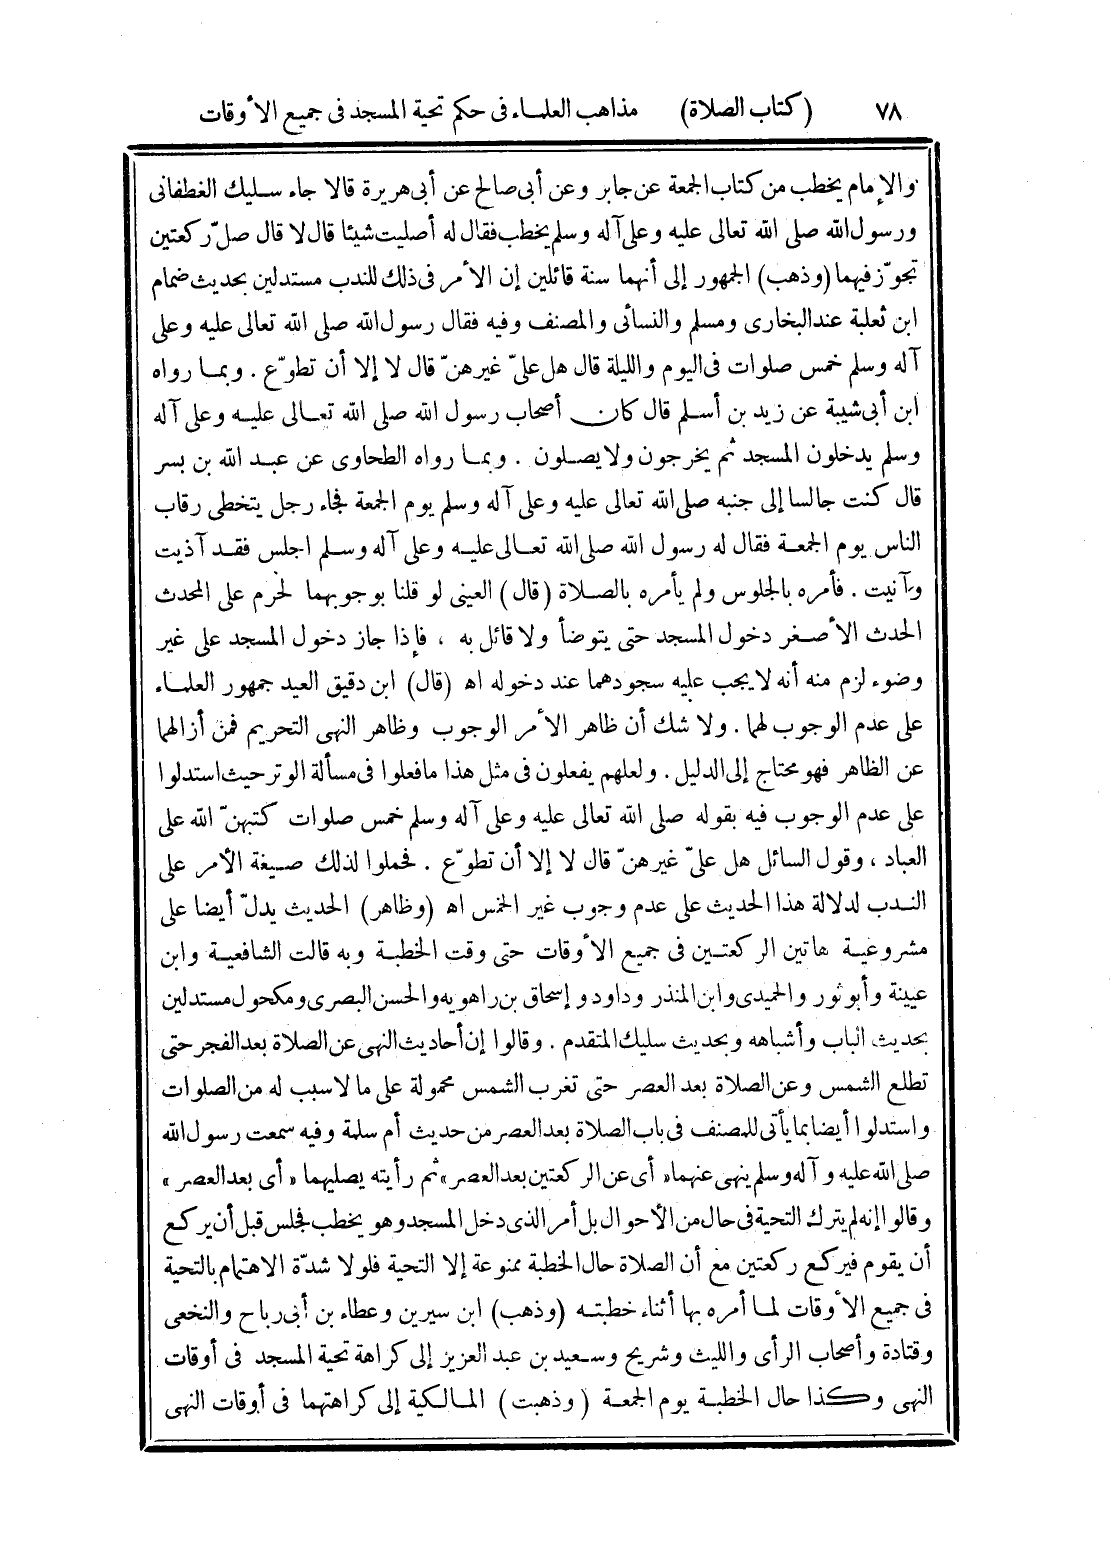 ٧٨ (كتاب الصلاة) مذاهب العلماء فى حكم تحية المسجد فى جميع الأوقات
والإمام يخطب من كتاب الجمعة عن جابر وعن أبى صالح عن أبى هريرة قالا جاء سليك الغطفانى
ورسول الله صلى الله تعالى عليه وعلى آله وسلم يخطب فقال له أصليت شيئا قال لا قال صلّ ركعتين
تجوّز فيهما (وذهب) الجمهور إلى أنهما سنة قائلين إن الأمر فى ذلك للندب مستدلين بحديث ضمام
ابن ثعلبة عند البخارى ومسلم والنسائى والمصنف وفيه فقال رسول الله صلى الله تعالى عليه وعلى
آله وسلم خمس صلوات فى اليوم والليلة قال هل علىّ غيرهنّ قال لا إلا أن تطوّع . وبما رواه
ابن أبى شيبة عن زيد بن أسلم قال كان أصحاب رسول الله صلى الله تعالى عليه وعلى آله
وسلم يدخلون المسجد ثم يخرجون ولا يصلون . وبما رواه الطحاوى عن عبد الله بن بسر
قال كنت جالسا إلى جنبه صلى الله تعالى عليه وعلى آله وسلم يوم الجمعة فجاء رجل يتخطى رقاب
الناس يوم الجمعة فقال له رسول الله صلى الله تعالى عليه وعلى آله وسلم اجلس فقد آذيت
وآنيت . فأمره بالجلوس ولم يأمره بالصلاة (قال) العينى لو قلنا بوجوبهما لحرم على المحدث
الحدث الأصغر دخول المسجد حتى يتوضأ ولا قائل به ، فإذا جاز دخول المسجد على غير
وضوء لزم منه أنه لا يجب عليه سجودهما عند دخوله اه (قال) ابن دقيق العيد جمهور العلماء
على عدم الوجوب لهما . ولا شك أن ظاهر الأمر الوجوب وظاهر النهى التحريم فمن أزالهما
عن الظاهر فهو محتاج إلى الدليل . ولعلهم يفعلون فى مثل هذا ما فعلوا فى مسألة الوتر حيث استدلوا
على عدم الوجوب فيه بقوله صلى الله تعالى عليه وعلى آله وسلم خمس صلوات كتبهنّ الله على
العباد ، وقول السائل هل علىّ غيرهنّ قال لا إلا أن تطوّع . فحملوا لذلك صيغة الأمر على
الندب لدلالة هذا الحديث على عدم وجوب غير الخمس اه (وظاهر) الحديث يدلّ أيضا على
مشروعية هاتين الركعتين فى جميع الأوقات حتى وقت الخطبة وبه قالت الشافعية وابن
عيينة وأبو ثور والحميدى وابن المنذر وداود وإسحاق بن راهويه والحسن البصرى ومكحول مستدلين
بحديث الباب وأشباهه وبحديث سليك المتقدم . وقالوا إن أحاديث النهى عن الصلاة بعد الفجر حتى
تطلع الشمس وعن الصلاة بعد العصر حتى تغرب الشمس محمولة على ما لا سبب له من الصلوات
واستدلوا أيضا بما يأتى للمصنف فى باب الصلاة بعد العصر من حديث أم سلمة وفيه سمعت رسول الله
صلى الله عليه وآله وسلم ينهى عنهما «أى عن الركعتين بعد العصر» ثم رأيته يصليهما « أى بعد العصر »
وقالوا إنه لم يترك التحية فى حال من الأحوال بل أمر الذى دخل المسجد وهو يخطب فجلس قبل أن يركع
أن يقوم فيركع ركعتين مع أن الصلاة حال الخطبة ممنوعة إلا التحية فلولا شدّة الاهتمام بالتحية
فى جميع الأوقات لما أمره بها أثناء خطبته (وذهب) ابن سيرين وعطاء بن أبى رباح والنخعى
وقتادة وأصحاب الرأى والليث وشريح وسعيد بن عبد العزيز إلى كراهة تحية المسجد فى أوقات
النهى وكذا حال الخطبة يوم الجمعة (وذهبت) المالكية إلى كراهتهما فى أوقات النهى